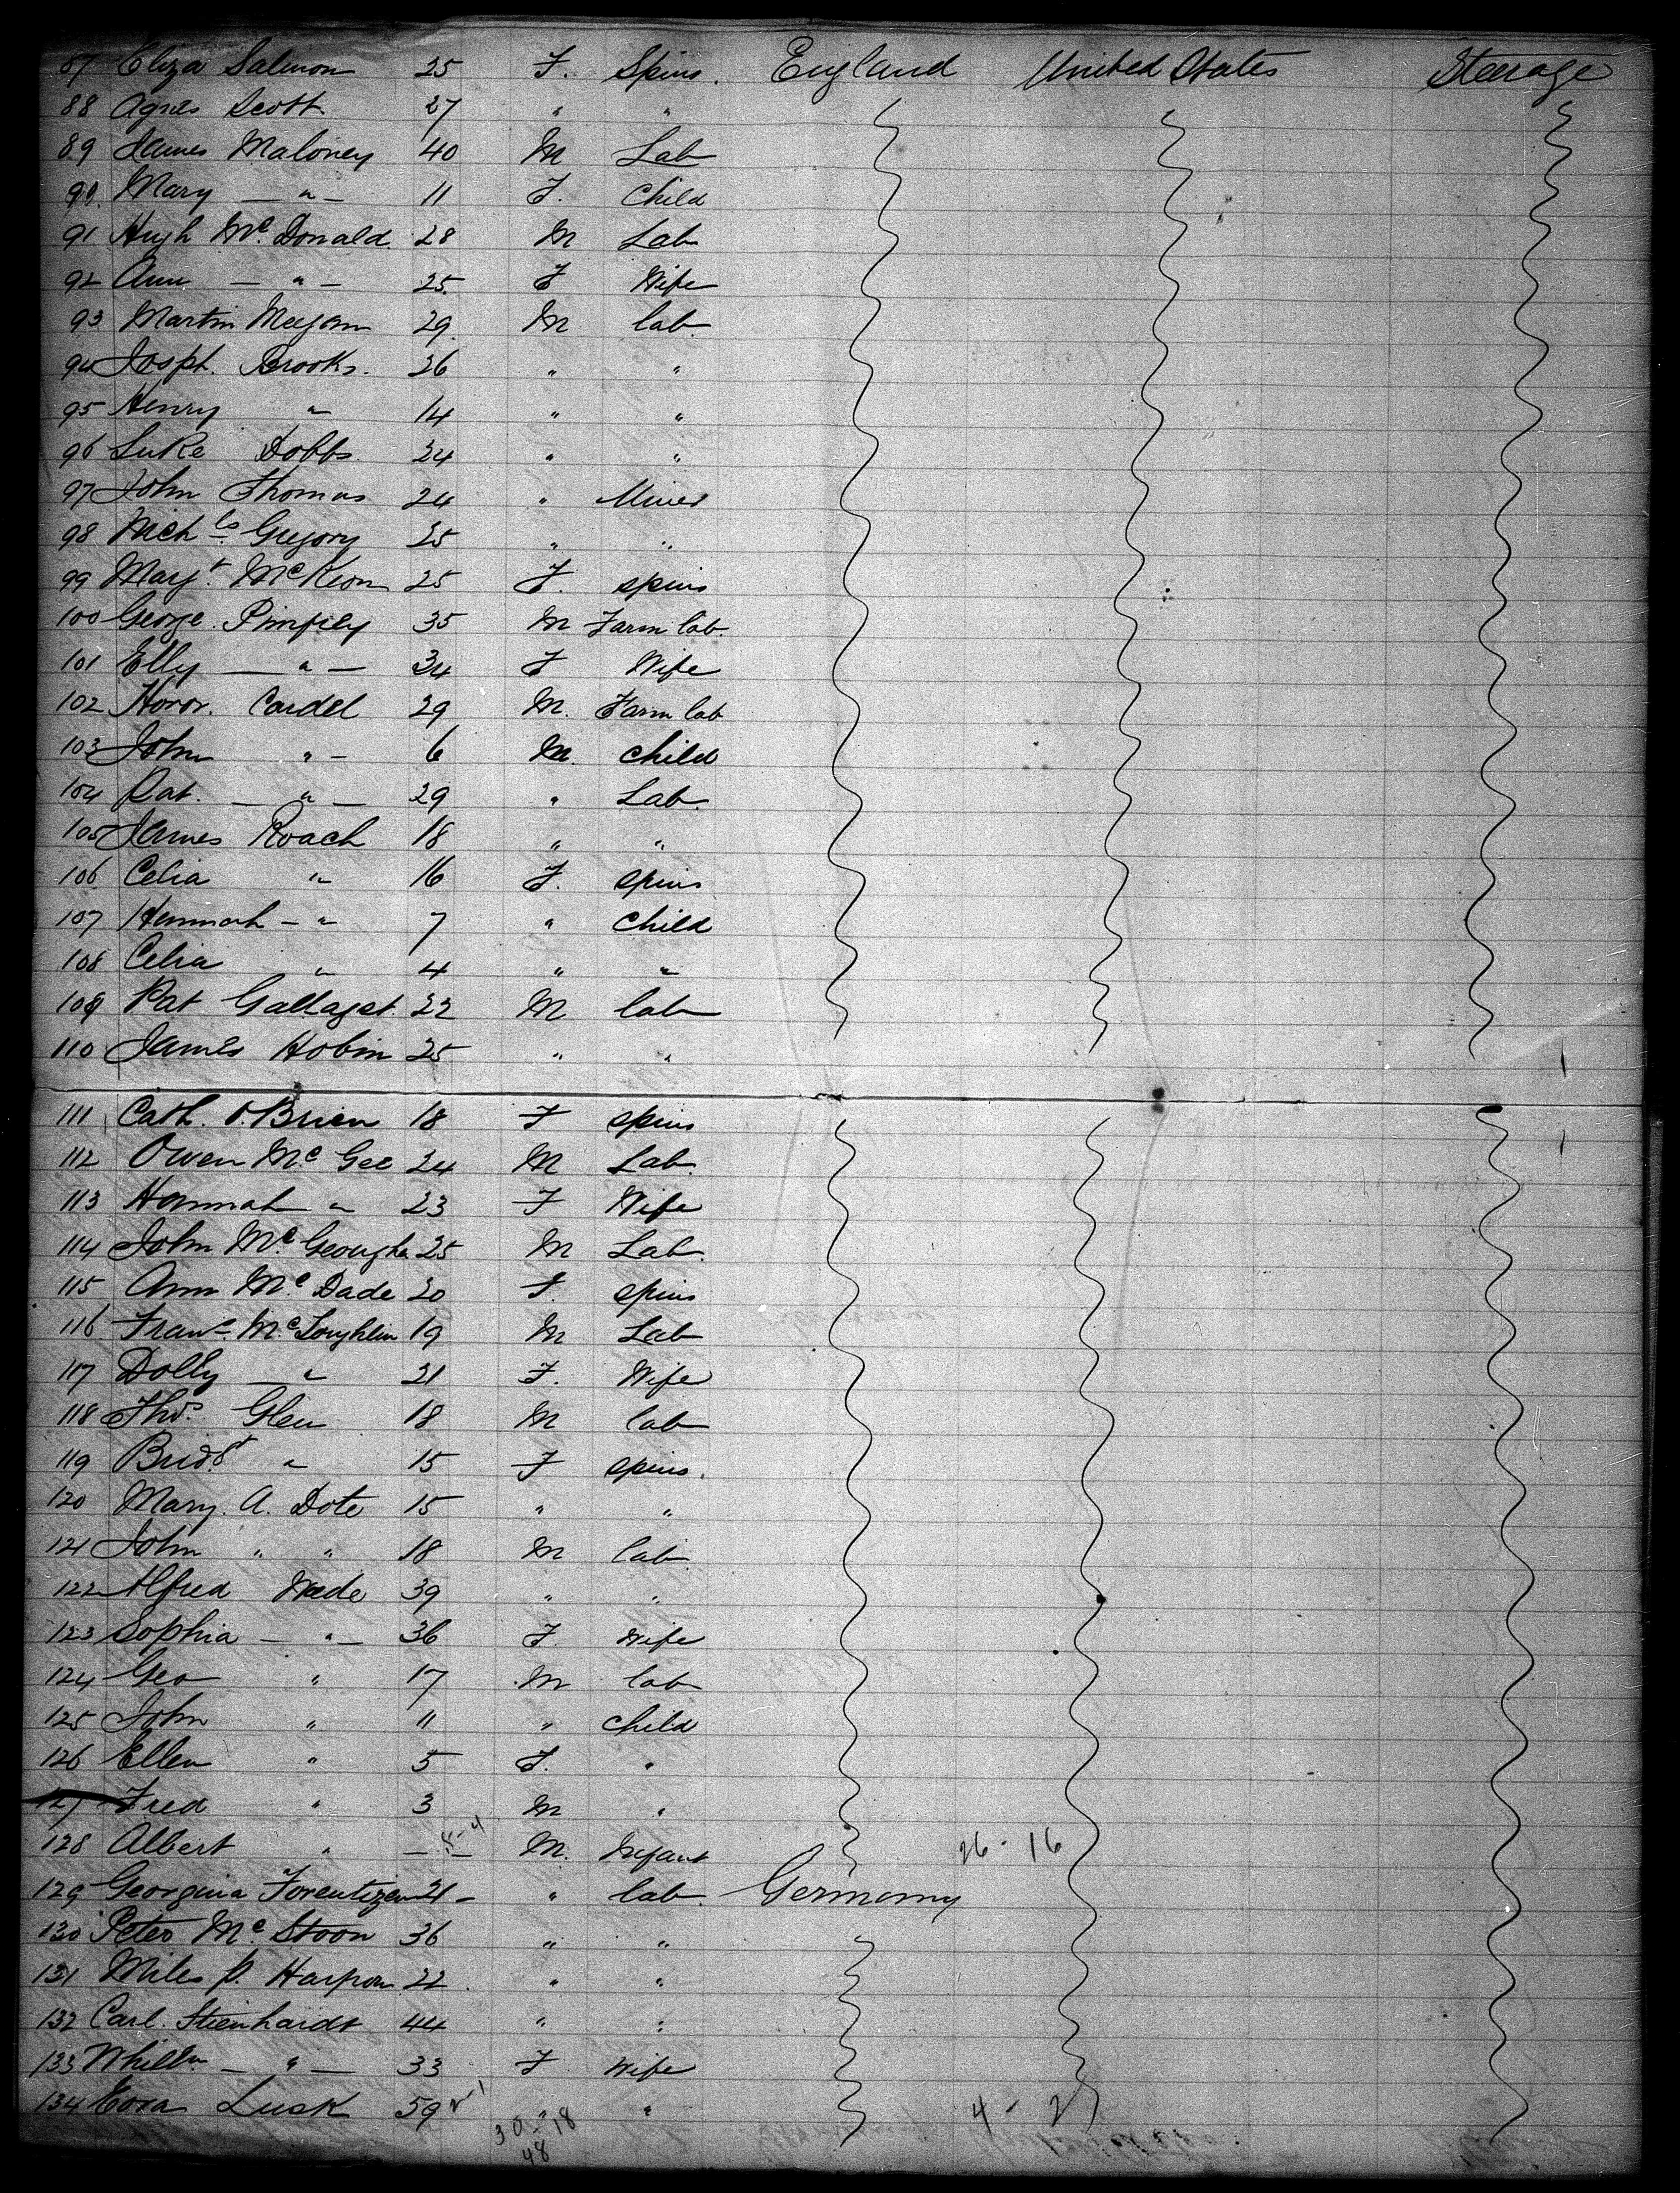 87 Eliza Salmon 25 F. Spins. England United States Steerage
88 Agnes Scott 27 " "
89 James Maloney 40 M Lab
90 Mary — " — 11 F. Child
91 Hugh Mc. Donald. 28 M Lab
92 Ann — " — 25. F Wife
93 Martin Meegan 29. M lab
94 Josph. Brooks. 26 " "
95 Henry " 14 " "
96 Luke Dobbs 24 " "
97 John Thomas 24 " Miner
98 Nichls Gregory 25 " "
99 Margt. McKeon 25 F. spins
100 George. 35 M Farm lab.
101 Elly — " — 34 F Wife
102 Honor. Cardel 29 M. Farm lab
103 John " - 6 M. child
104 Pat. — " — 29 " Lab.
105 James Roach 18 " "
106 Celia " 16 F. spins
107 Hannah - " 7 " child
108 Celia " 4 " "
109 Pat 22 M lab
110 James Hobin 25 " "
111 Cath. O.Brien 18 F spins
112 Owen Mc Gee 24 M Lab.
113 Hannah " 23 F Wife
114 John Mc. Geougha 25 M Lab.
115 Ann Mc. Dade 20 F. spins
116 Franc. McLoughlin 19 M Lab
117 Dolly — " 21 F. Wife
118 Thos. Glen 18 M lab
119 Bridgt. " 15 F spins.
120 Mary. A. Dote 15 " "
121 John " " 18 M lab
122 Alfred Wade 39 " "
123 Sophia — " — 36 F. Wife
124 Geo " 17 M lab
125 John " 11 " child
126 Ellen " 5 F. "
127 Fred " 3 M "
128 Albert " — M. Infant 26 - 16
129 Georgina 21 - " lab. Germany
130 Peter Mc Stoon 36 " "
131 Miles P. 22 " "
132 Carl. Stienhardt 44 " "
133 — " — 33 F Wife
134 Lusk 59 " " 4 - 2
30 - 18
48